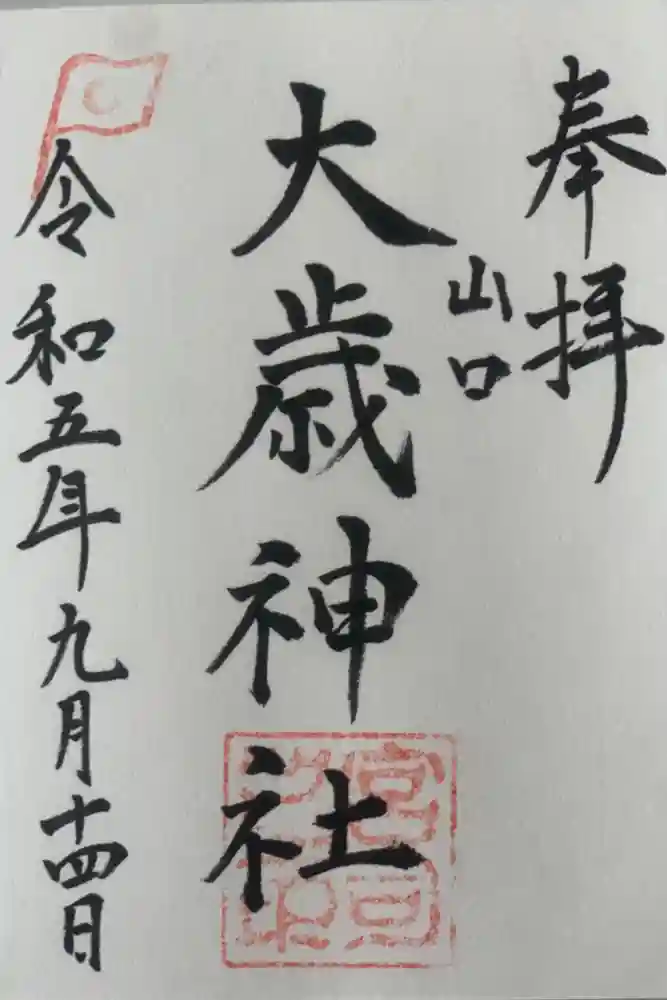 奉拝
山口
大歳神社
令和五年九月十四日